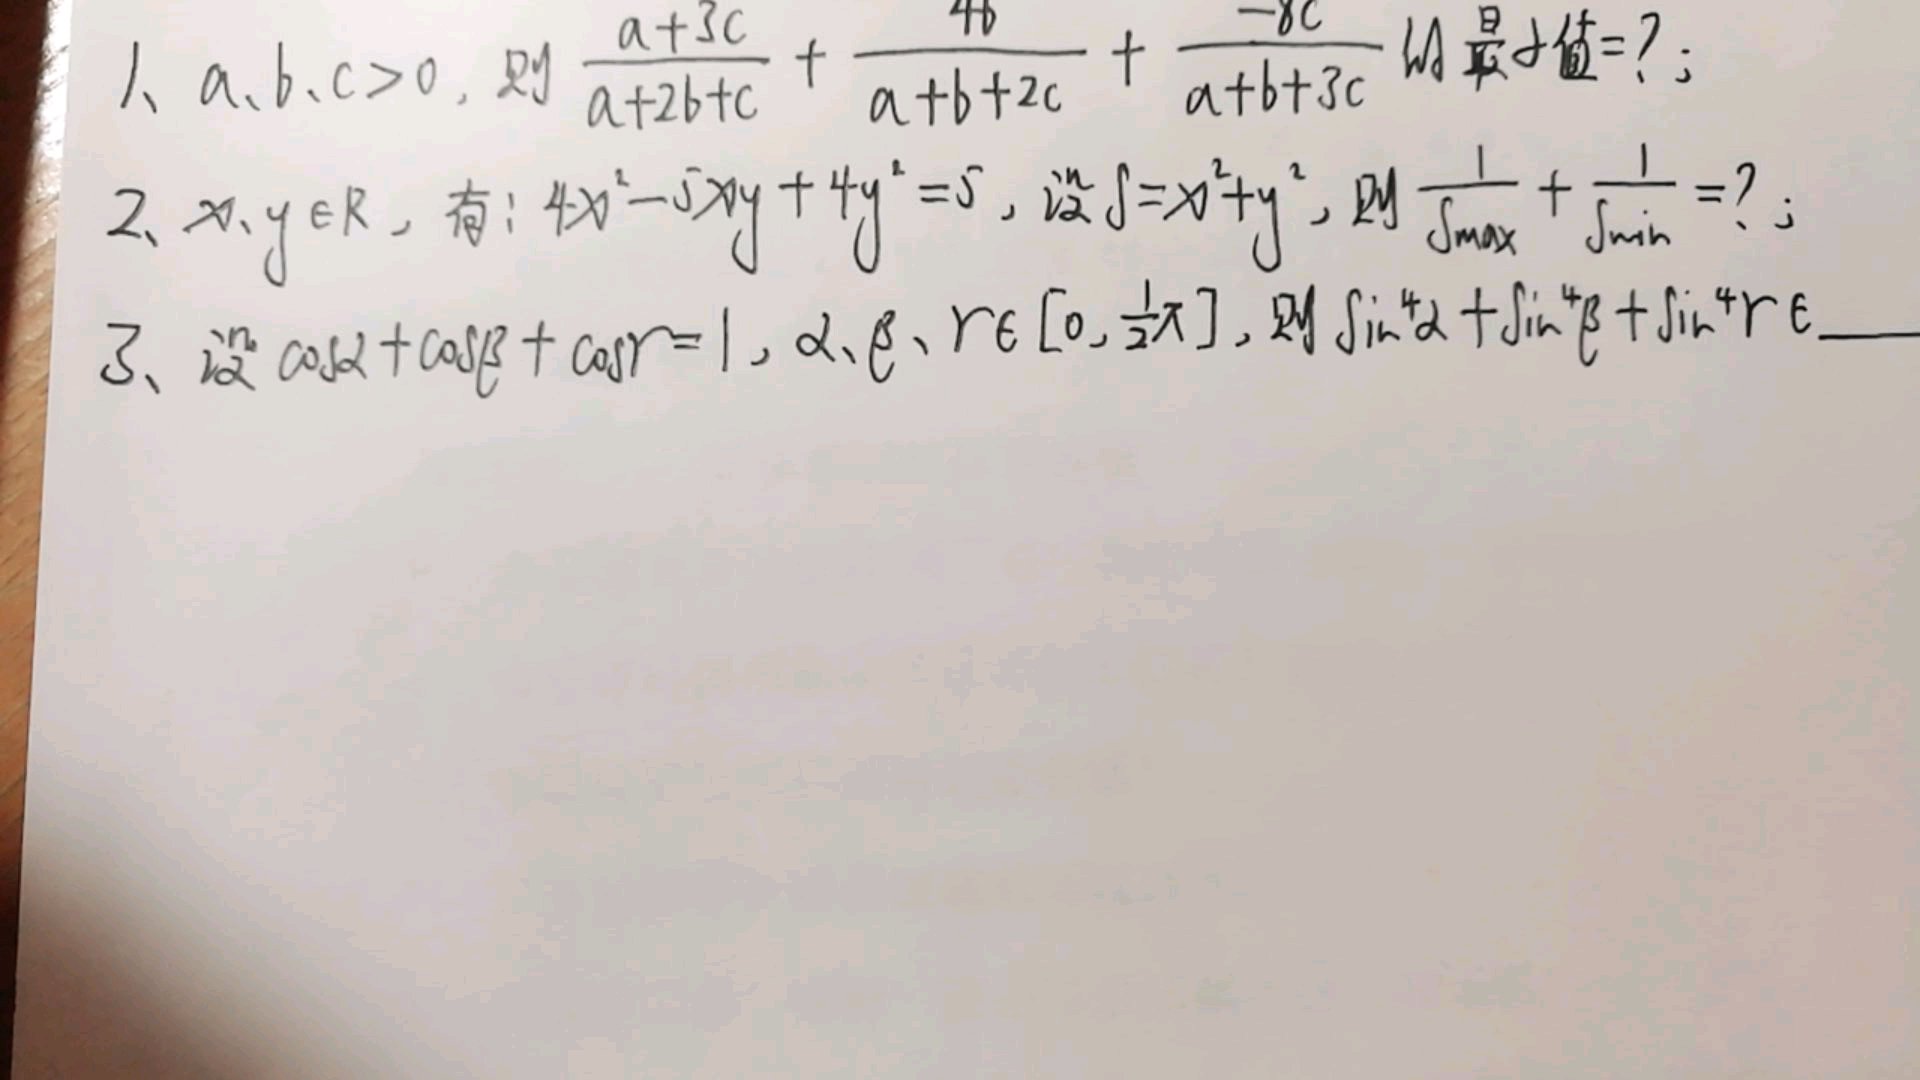 1、a、b、c>0, 则 (a+3c)/(a+2b+c) + 4b/(a+b+2c) + -8c/(a+b+3c) 的最小值=?;
2、x、y∈R, 有: 4x²-5xy+4y²=5, 设S=x²+y², 则 1/Smax + 1/Smin =?;
3、设 cosα+cosβ+cosr=1, α、β、r∈[0, 1/2π], 则 sin⁴α+sin⁴β+sin⁴r∈____